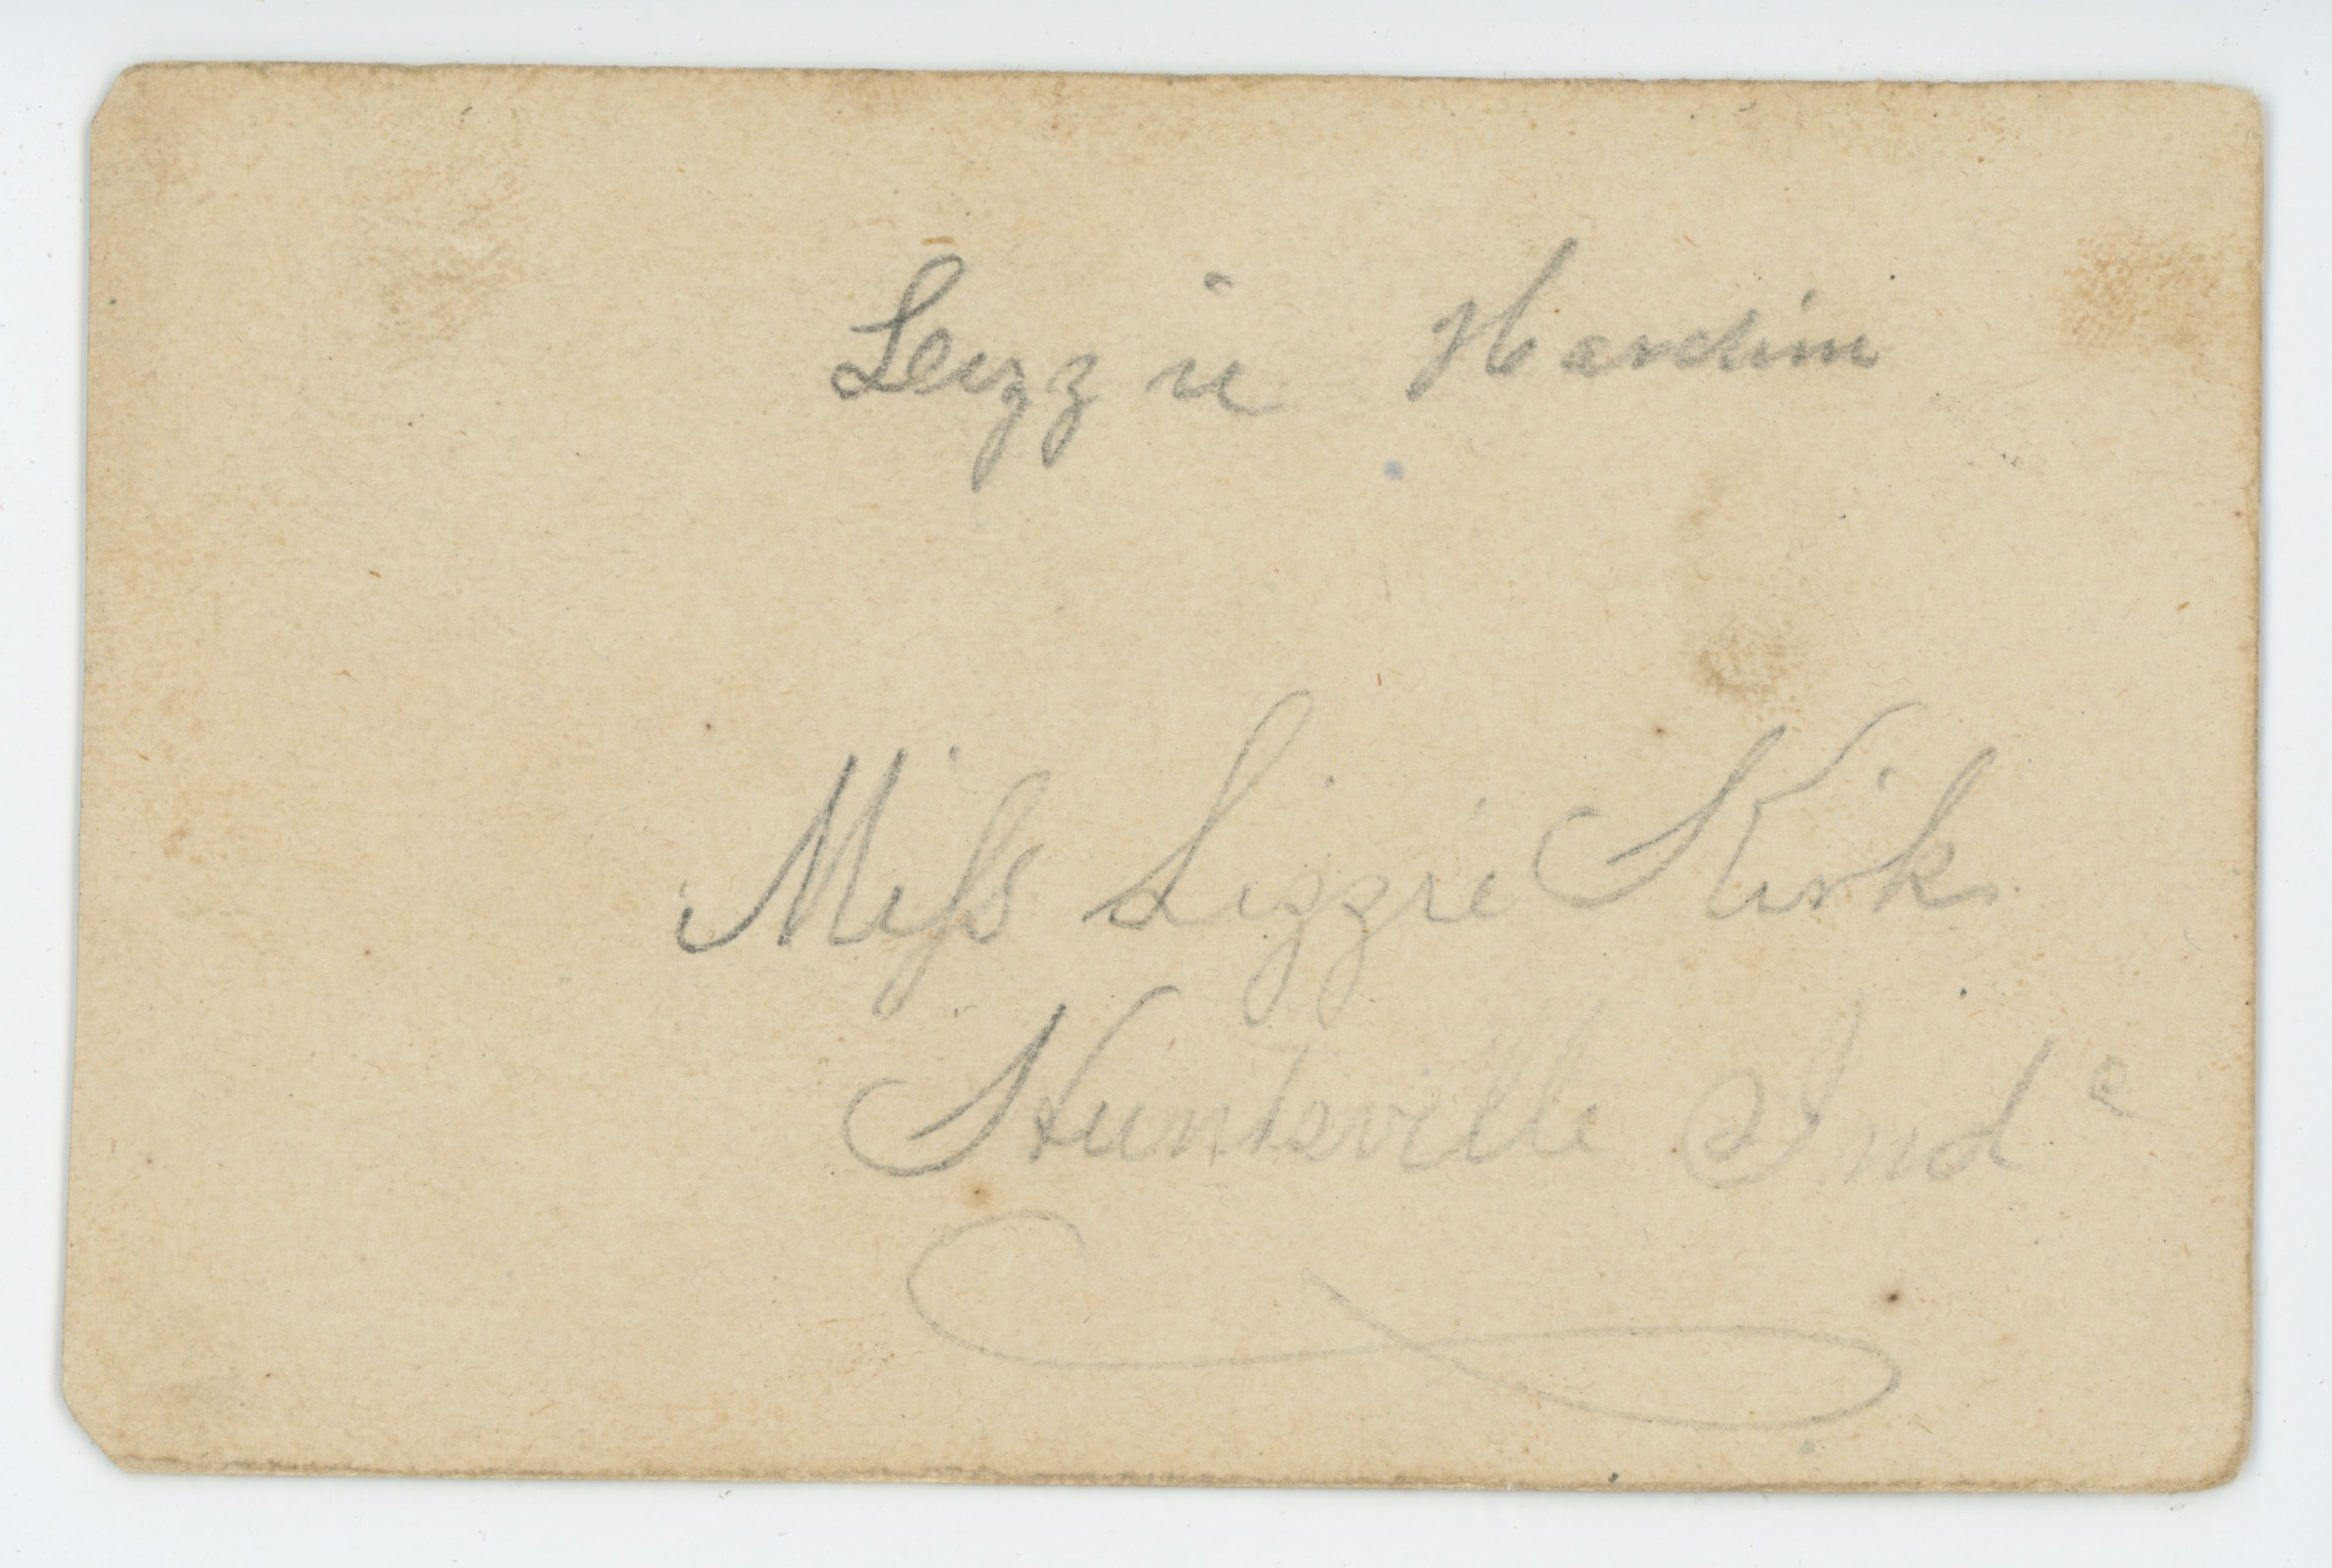 Leizzie Hardin
Miss Lizzie Kirk
Huntsville Ind a